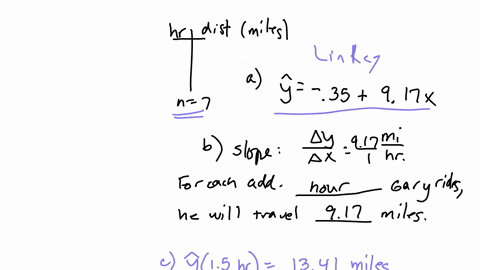 hr dist (miles)
n=7
LinReg
a) ŷ = -.35 + 9.17x
b) slope: Δy/Δx = 9.17/1 mi/hr.
For each add. hour Gary rides,
he will travel 9.17 miles.
c) ŷ(1.5 hr) = 13.41 miles